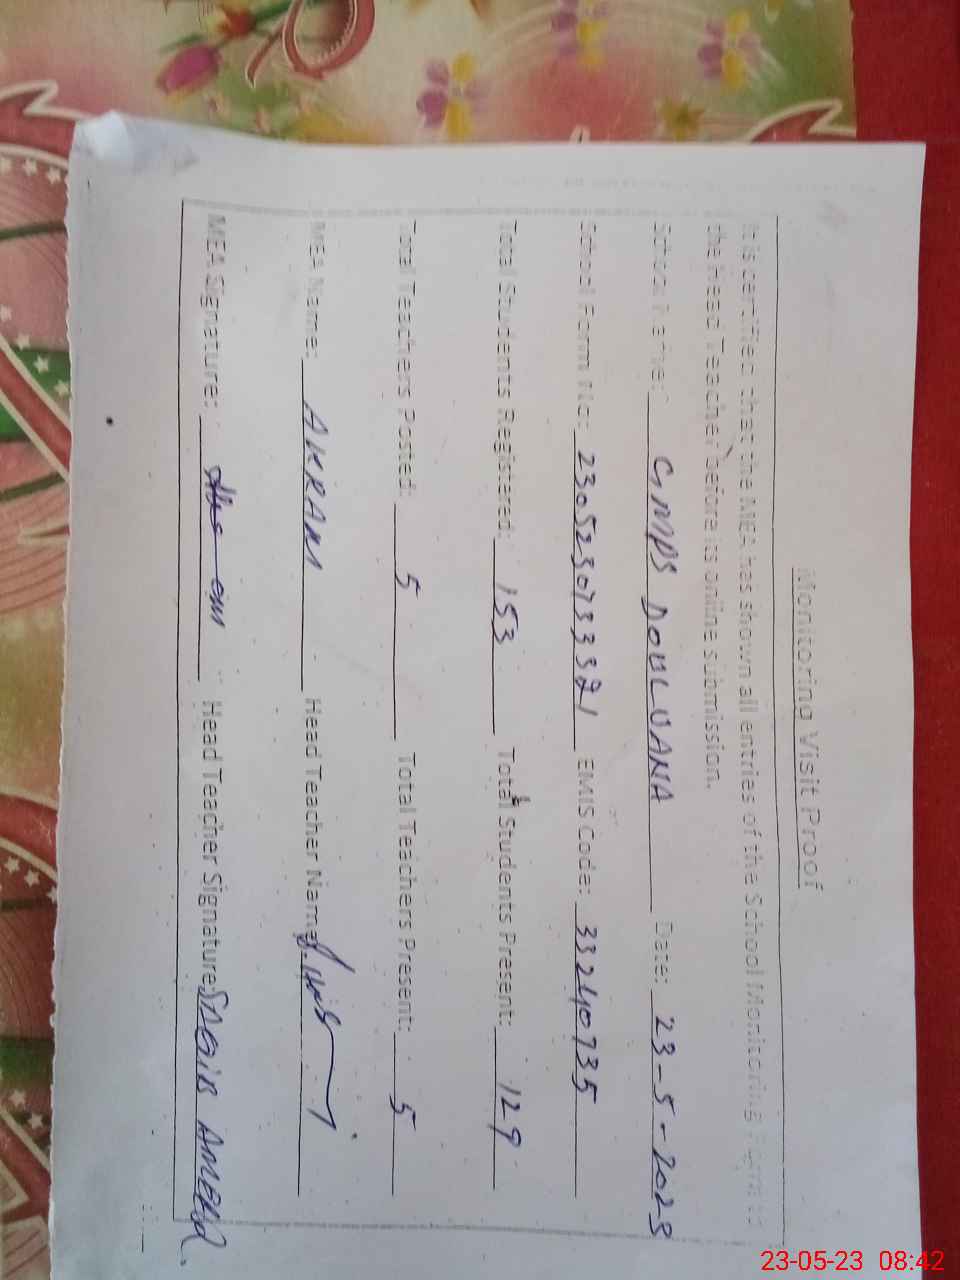 Monitoring Visit Proof
It is certified that the MEA has shown all entries of the School Monitoring Form to
the Head Teacher before its online submission.
School Name: GMPS DOULUANA Date: 23-5-2023
School Form No: 2305230733321 EMIS Code: 33240735
Total Students Registered: 153 Total Students Present: 129
Total Teachers Posted: 5 Total Teachers Present: 5
MEA Name: AKRAM Head Teacher Name:
MEA Signature: Head Teacher Signature: AMEED
23-05-23 08:42